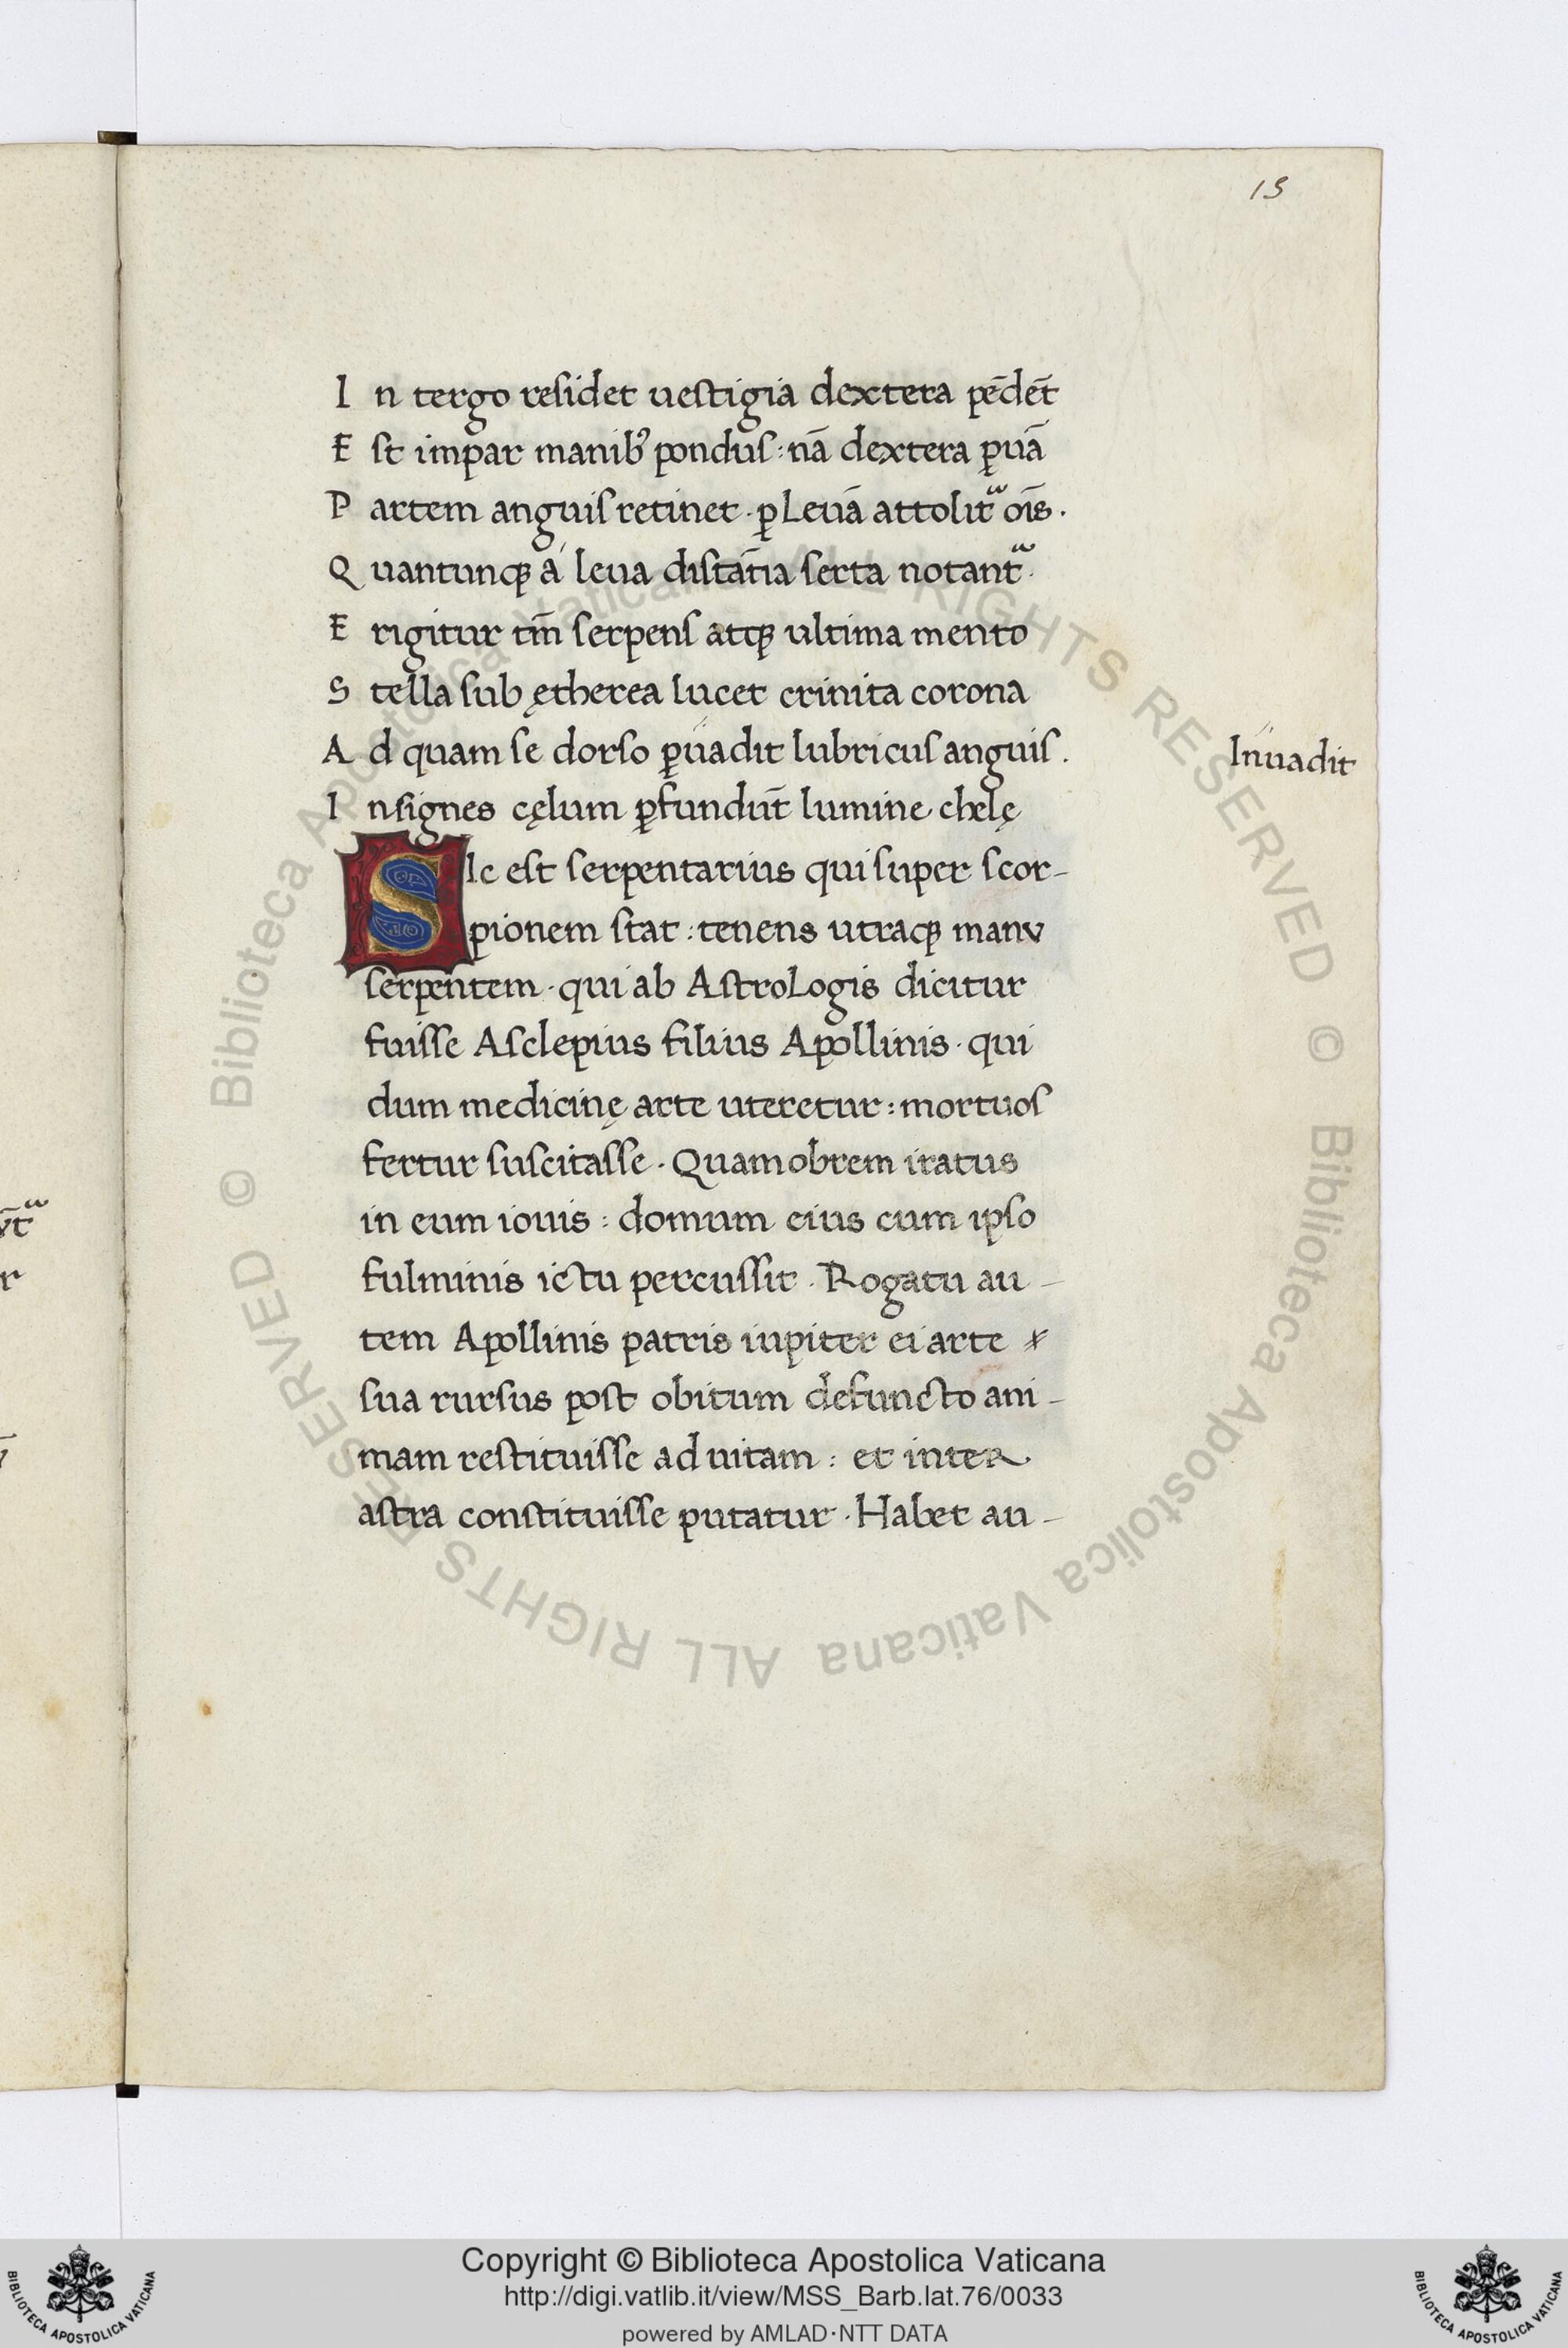 15
I n tergo reſidet ueſtigia dextera pēdēt
E st impar manibꝰ pondus : nā dextera ꝑuā
P artem anguiſ retinet · ꝑ Leuā attolit᷑ oīs .
Q uantunqꝫ á leua diſtātia ſerta notant᷑ .
E rigitur tm̄ ſerpenſ atqꝫ ultima mento
S tella ſub ętherea lucet crinita corona
A d quam ſe dorſo ꝑuadit lubricuſ anguiſ .
Inuadit
I nſignes cęlum ꝑfundūt lumine chelę
SIc eſt ſerpentarius qui ſuper ſcor-
pionem ſtat : tenens utraqꝫ manv
ſerpentem · qui ab AſtroLogis dicitur
fuiſſe Aſclepius filius Apollinis · qui
dum medicinę arte uteretur : mortuoſ
fertur ſuſcitaſſe · Quamobrem iratus
in eum iouis : domum eius cum ipſo
fulminis ictu percuſſit · Rogatu au-
tem Apollinis patris iupiter ei arte
ſua rurſus poſt obitum defuncto ani-
mam reſtituiſſe ad uitam : et inter
aſtra conſtituiſſe putatur · Habet au-
ALL RIGHTS RESERVED © Biblioteca Apostolica Vaticana ALL RIGHTS RESERVED © Biblioteca Apostolica Vaticana
Copyright © Biblioteca Apostolica Vaticana
http://digi.vatlib.it/view/MSS_Barb.lat.76/0033
powered by AMLAD·NTT DATA
BIBLIOTECA APOSTOLICA VATICANA
BIBLIOTECA APOSTOLICA VATICANA